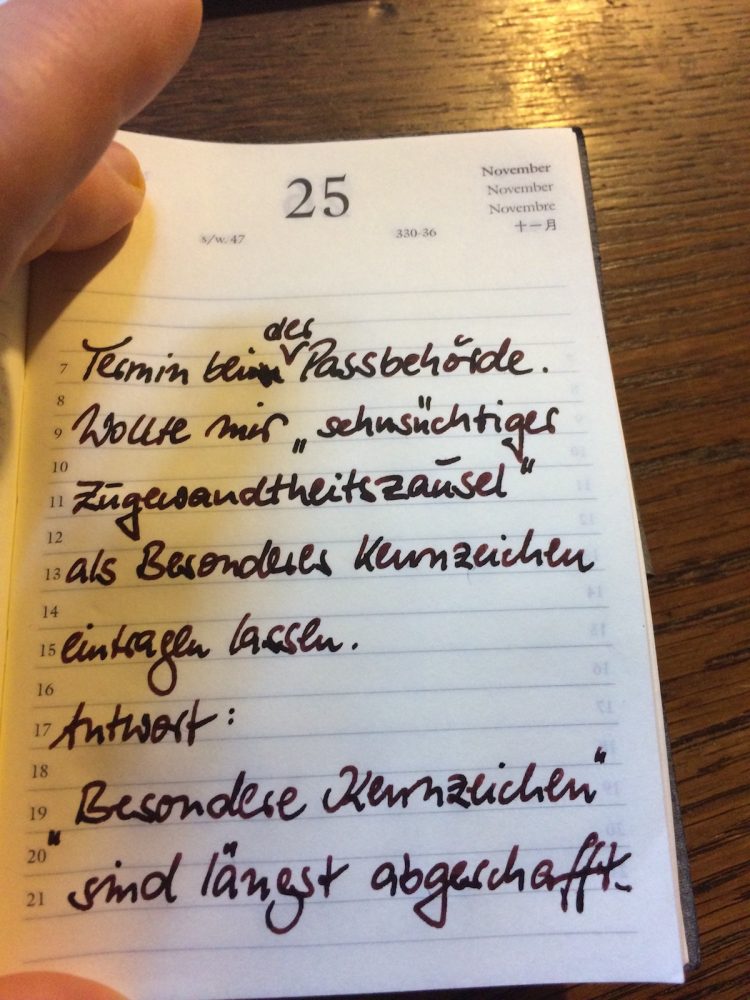 25
November
November
Novembre
十一月
s/w. 47
330-36
der
7 Termin beim Passbehörde.
8
9 Wollte mir „sehnsüchtiger
10
11 Zugewandtheitszausel“
12
13 als Besonderes Kennzeichen
14
15 eintragen lassen.
16
17 Antwort:
18
19 Besondere Kennzeichen“
20 „
21 sind längst abgeschafft.